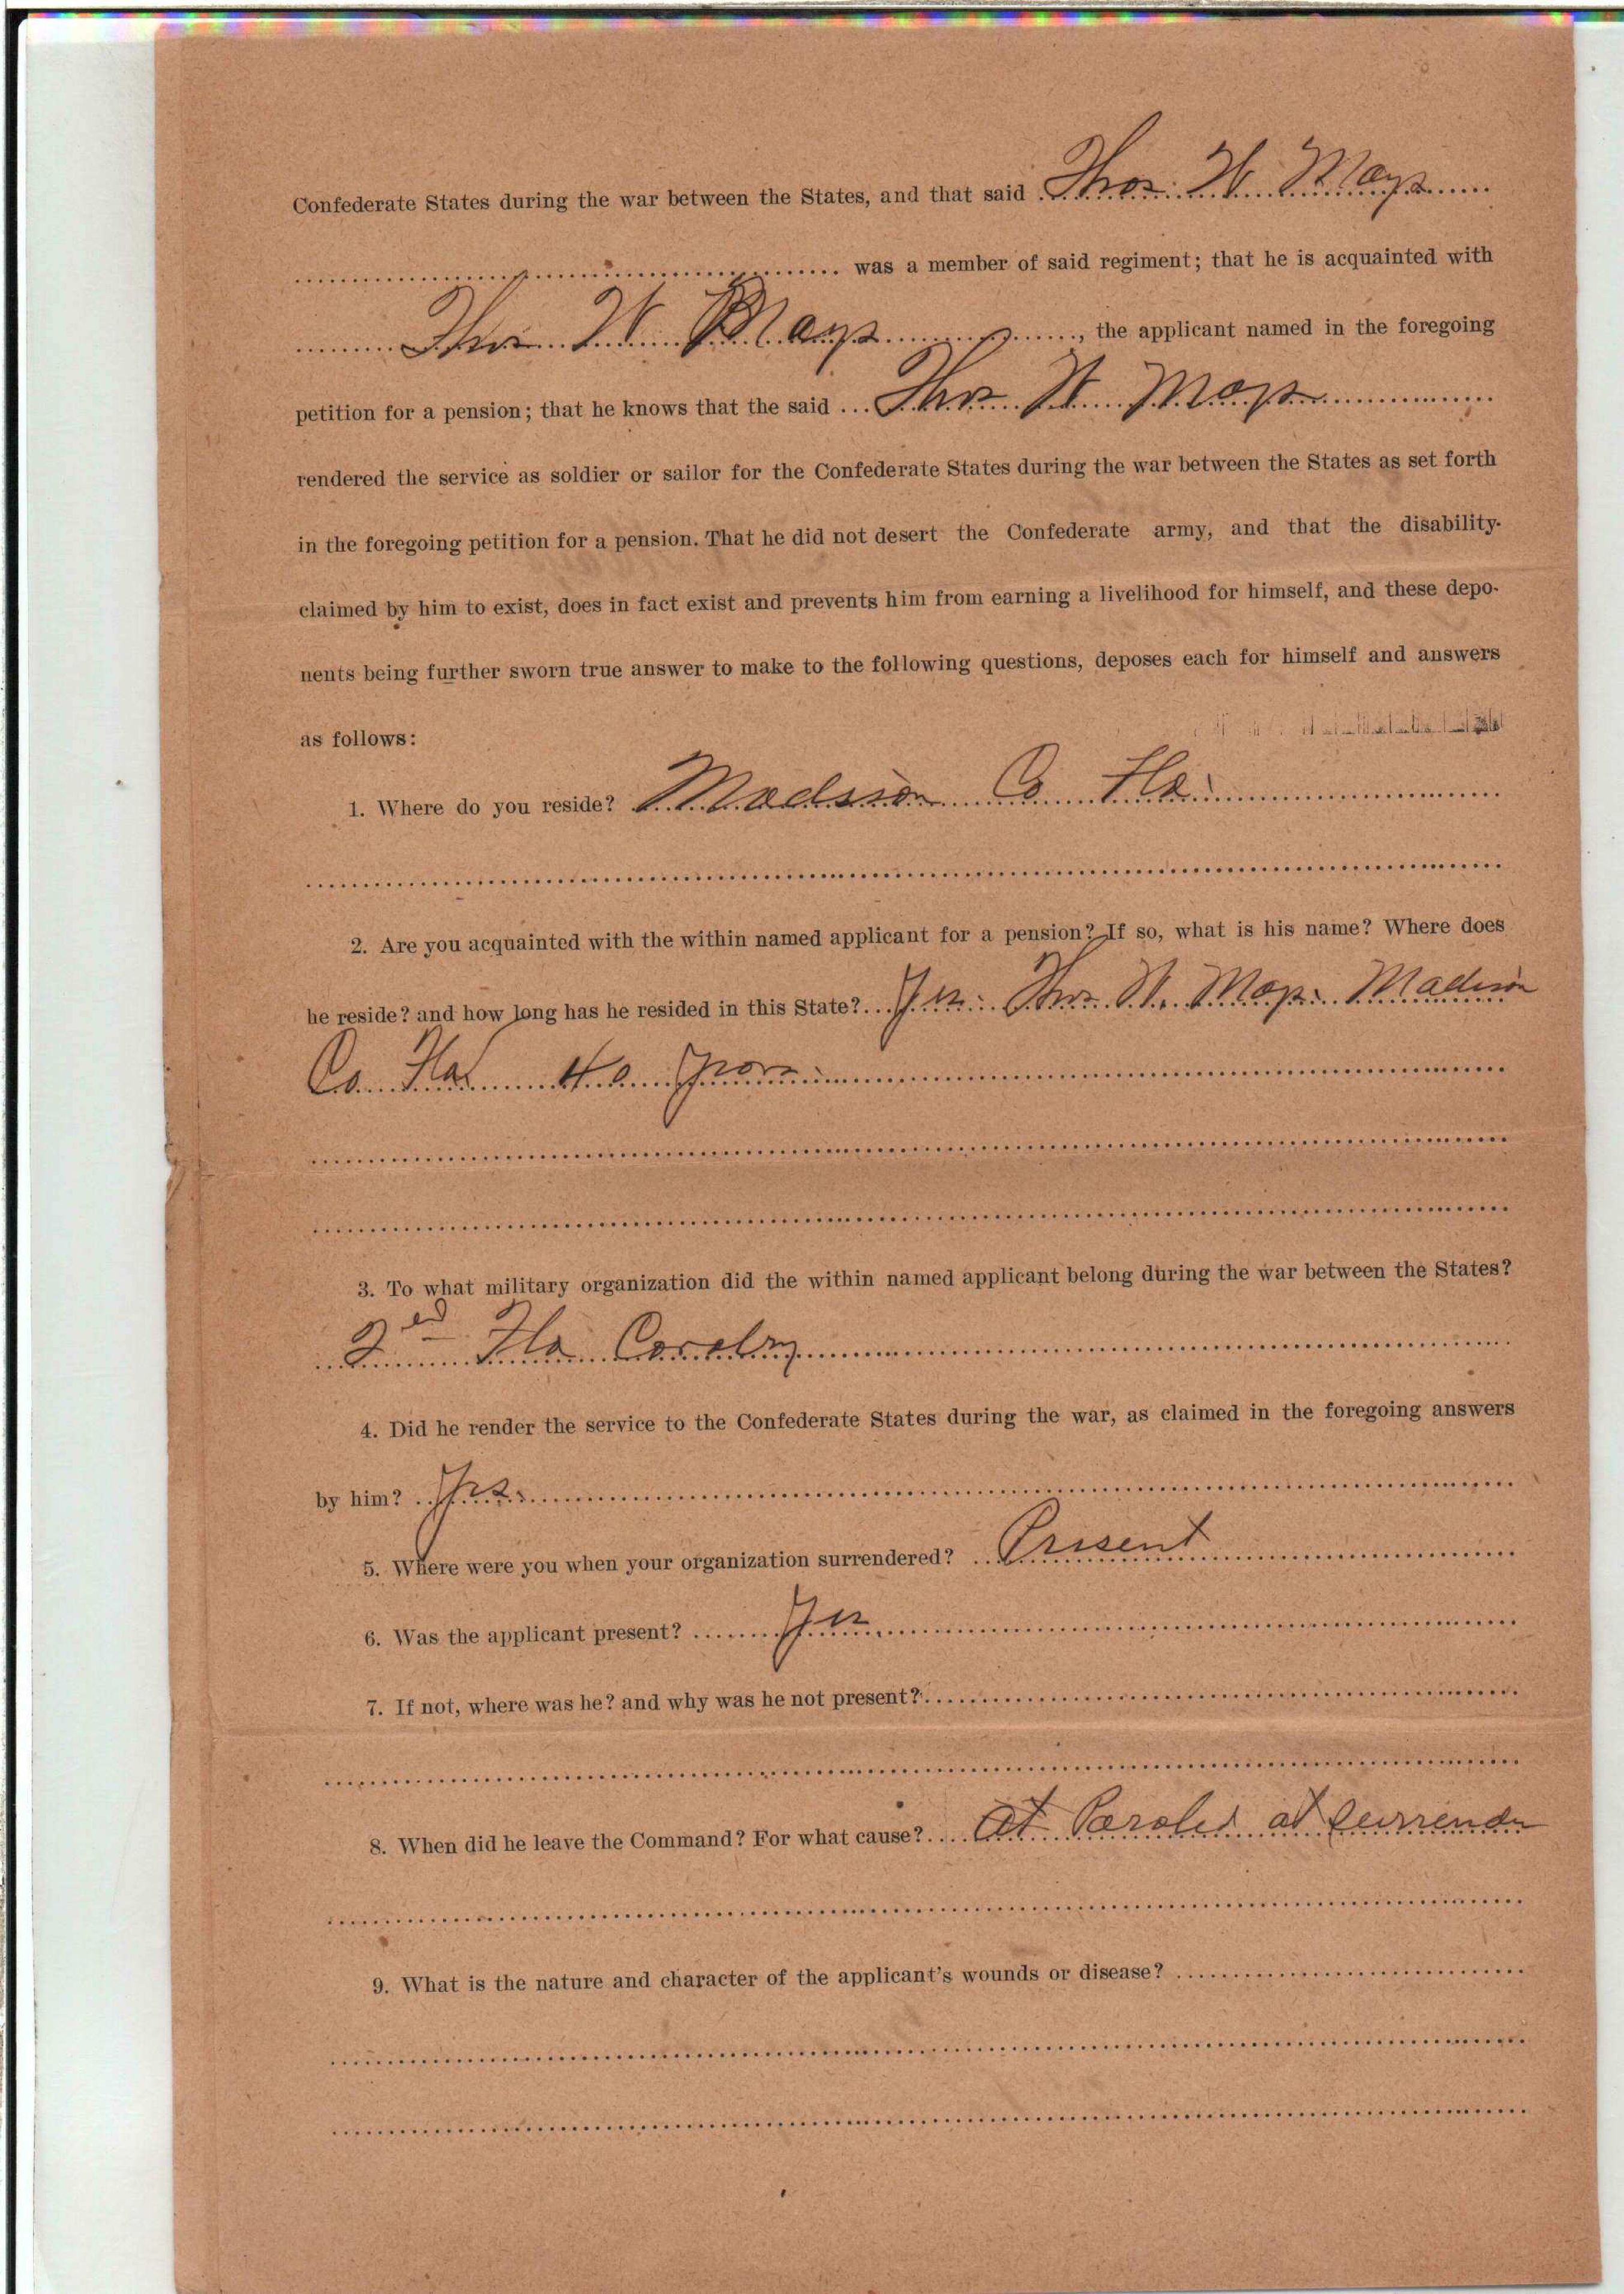 Confederate States during the war between the States, and that said Thos. W. Mays
was a member of said regiment; that he is acquainted with
Thos W. Mays, the applicant named in the foregoing
petition for a pension; that he knows that the said Thos W. Mays
rendered the service as soldier or sailor for the Confederate States during the war between the States as set forth
in the foregoing petition for a pension. That he did not desert the Confederate army, and that the disability
claimed by him to exist, does in fact exist and prevents him from earning a livelihood for himself, and these depo-
nents being further sworn true answer to make to the following questions, deposes each for himself and answers
as follows:
1. Where do you reside? Madison Co Fla
2. Are you acquainted with the within named applicant for a pension? If so, what is his name? Where does
he reside? and how long has he resided in this State? Yes. Thos. W. Mays. Madison
Co. Fla 40 years
3. To what military organization did the within named applicant belong during the war between the States?
2ed Fla Cavalry
4. Did he render the service to the Confederate States during the war, as claimed in the foregoing answers
by him? Yes
5. Where were you when your organization surrendered? Present
6. Was the applicant present? Yes
7. If not, where was he? and why was he not present?
8. When did he leave the Command? For what cause? At Paroled at surrender
9. What is the nature and character of the applicant's wounds or disease?